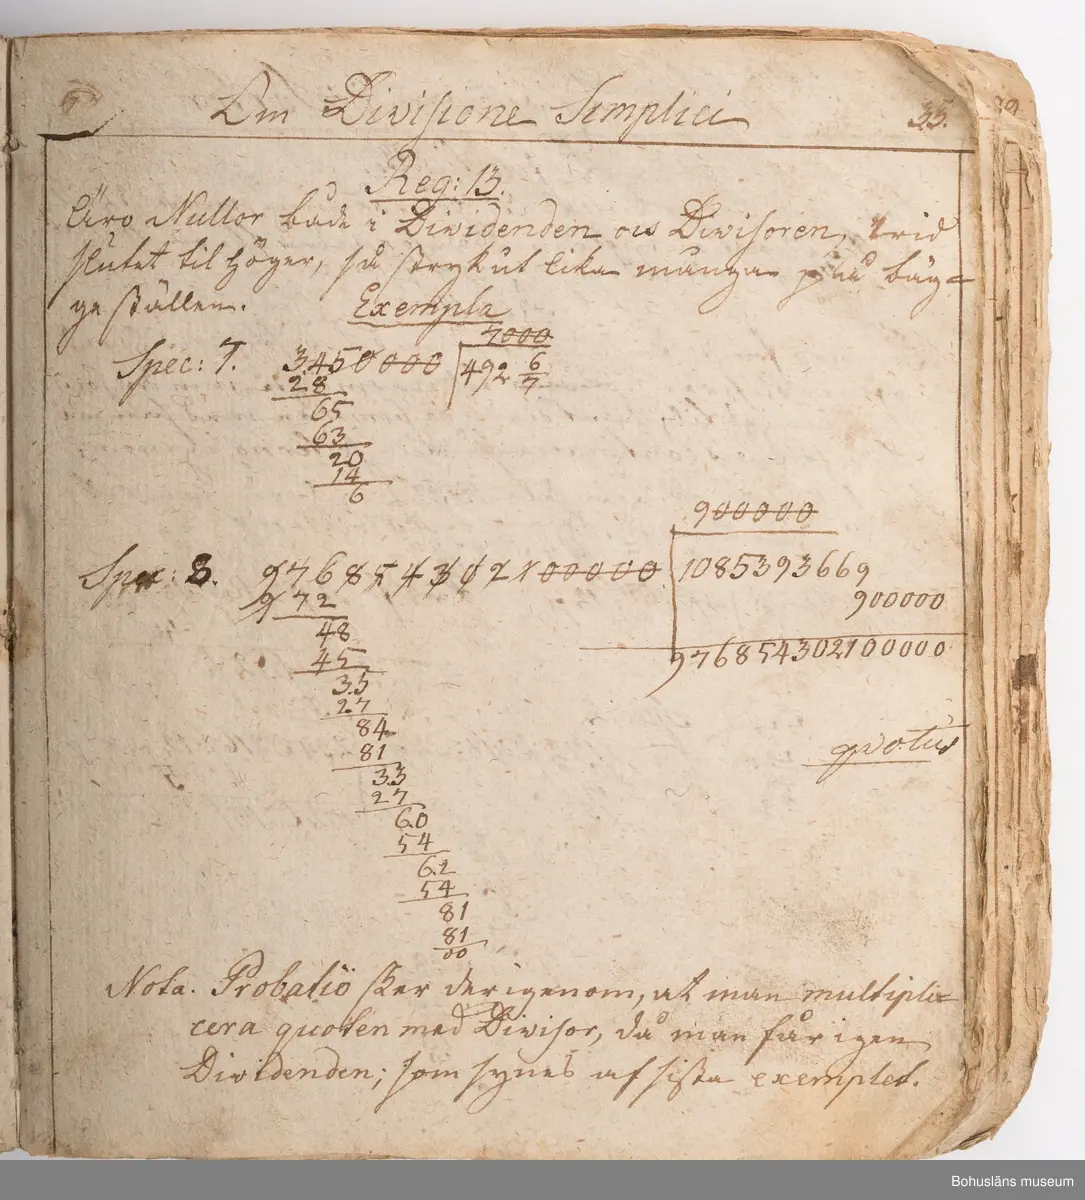 Om Divisione Simplici 35.
Reg: 13.
Äro Nullor både i Dividenden och Divisoren, wid
slutet til höger, så stryk ut lika många på bäg-
ge ställen.
Exempla
7000
Spec: 7. 3450000 492 6/7
28
65
63
20
14
6
900000
Spec: 8. 976854302100000 10853936669
9 72 900000
48
45 976854302100000
35
27
84
81 qvotus
33
27
60
54
62
54
81
81
00
Nota. Probatio sker derigenom, at man multipli-
cera quoten med Divisor, då man får igen
Dividenden; som synes af sista exemplet.
Bohusläns museum